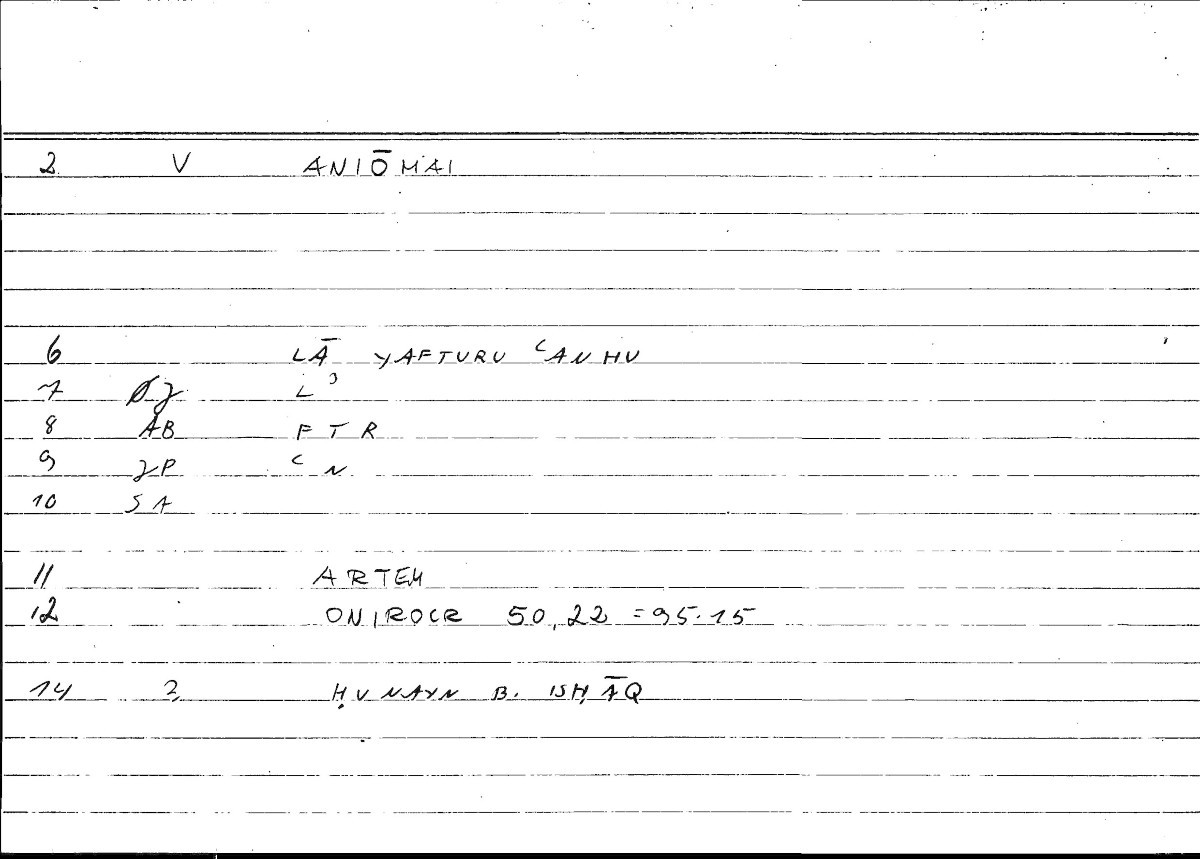 2 V ANIŌMAI
6 LĀ YAFTURU ʿANHU
7 L ʾ
8 AB F T R
9 ʿ N
10 SA
11 ARTEM
12 ONIROCR 50,22 = 95.15
14 2 ḤUNAYN B. ISḤĀQ